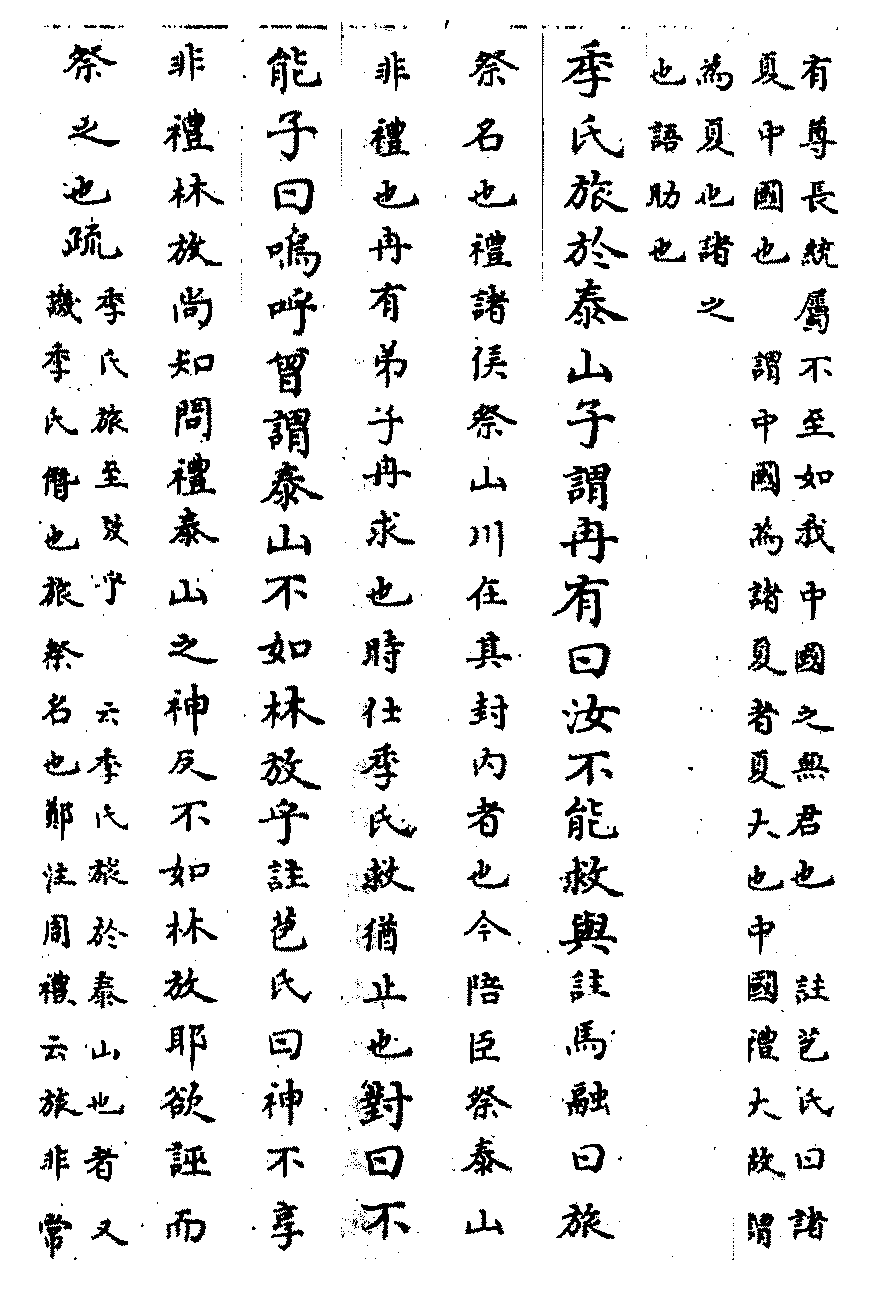 有尊長統屬不至如我中國之無君也　註苞氏曰諸
夏中國也　謂中國為諸夏者夏大也中國禮大故謂
為夏也諸之
也語助也
季氏旅於泰山子謂冉有曰汝不能救與註馬融曰旅
祭名也禮諸侯祭山川在其封內者也今陪臣祭泰山
非禮也冉有弟子冉求也時仕季氏救猶止也對曰不
能子曰嗚呼曾謂泰山不如林放乎註苞氏曰神不享
非禮林放尚知問禮泰山之神反不如林放耶欲誣而
祭之也疏
季氏旅至放乎　云季氏旅於泰山也者又
譏季氏僭也旅祭名也鄭注周禮云旅非常